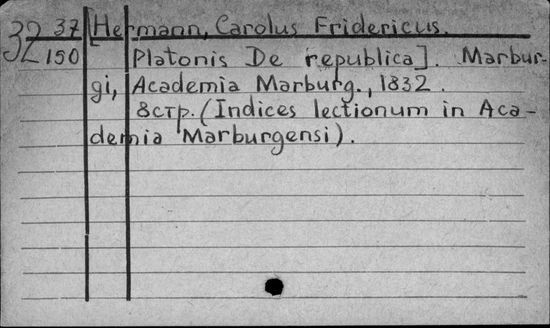 32 37 [Hermann, Carolus Fridericus.
150 Platonis De republica]. Marbur-
gi, Academia Marburg., 1832.
8стр. (Indices lectionum in Aca-
demia Marburgensi).